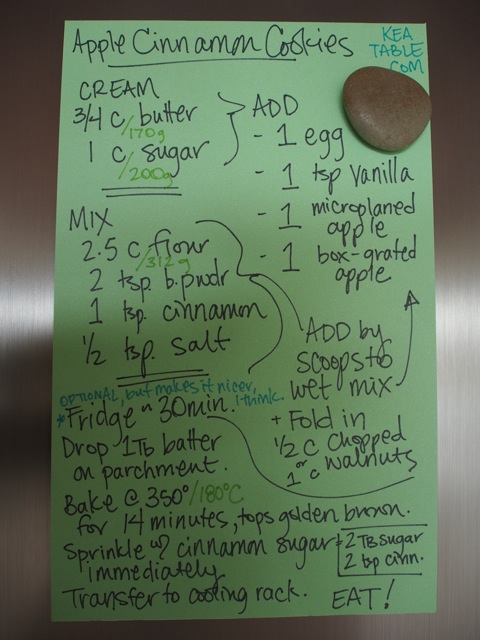 Apple Cinnamon Cookies
KEA
TABLE.
COM
CREAM
3/4 c butter
/170g
1 c sugar
/200g
ADD
- 1 egg
- 1 tsp vanilla
- 1 microplaned
apple
- 1 box-grated
apple
MIX
2.5 c flour
/312g
2 tsp. b.pwdr
1 tsp. cinnamon
1/2 tsp. salt
ADD by
scoops to
wet mix
+ Fold in
1/2 c chopped
or
1 c walnuts
OPTIONAL, but makes it nicer,
I think.
*Fridge ~ 30min.
Drop 1Tb batter
on parchment.
Bake @ 350°/180°C
for 14 minutes, tops golden brown.
Sprinkle w/ cinnamon sugar
immediately
2 TB sugar
2 tsp cinn.
Transfer to cooling rack.
EAT!